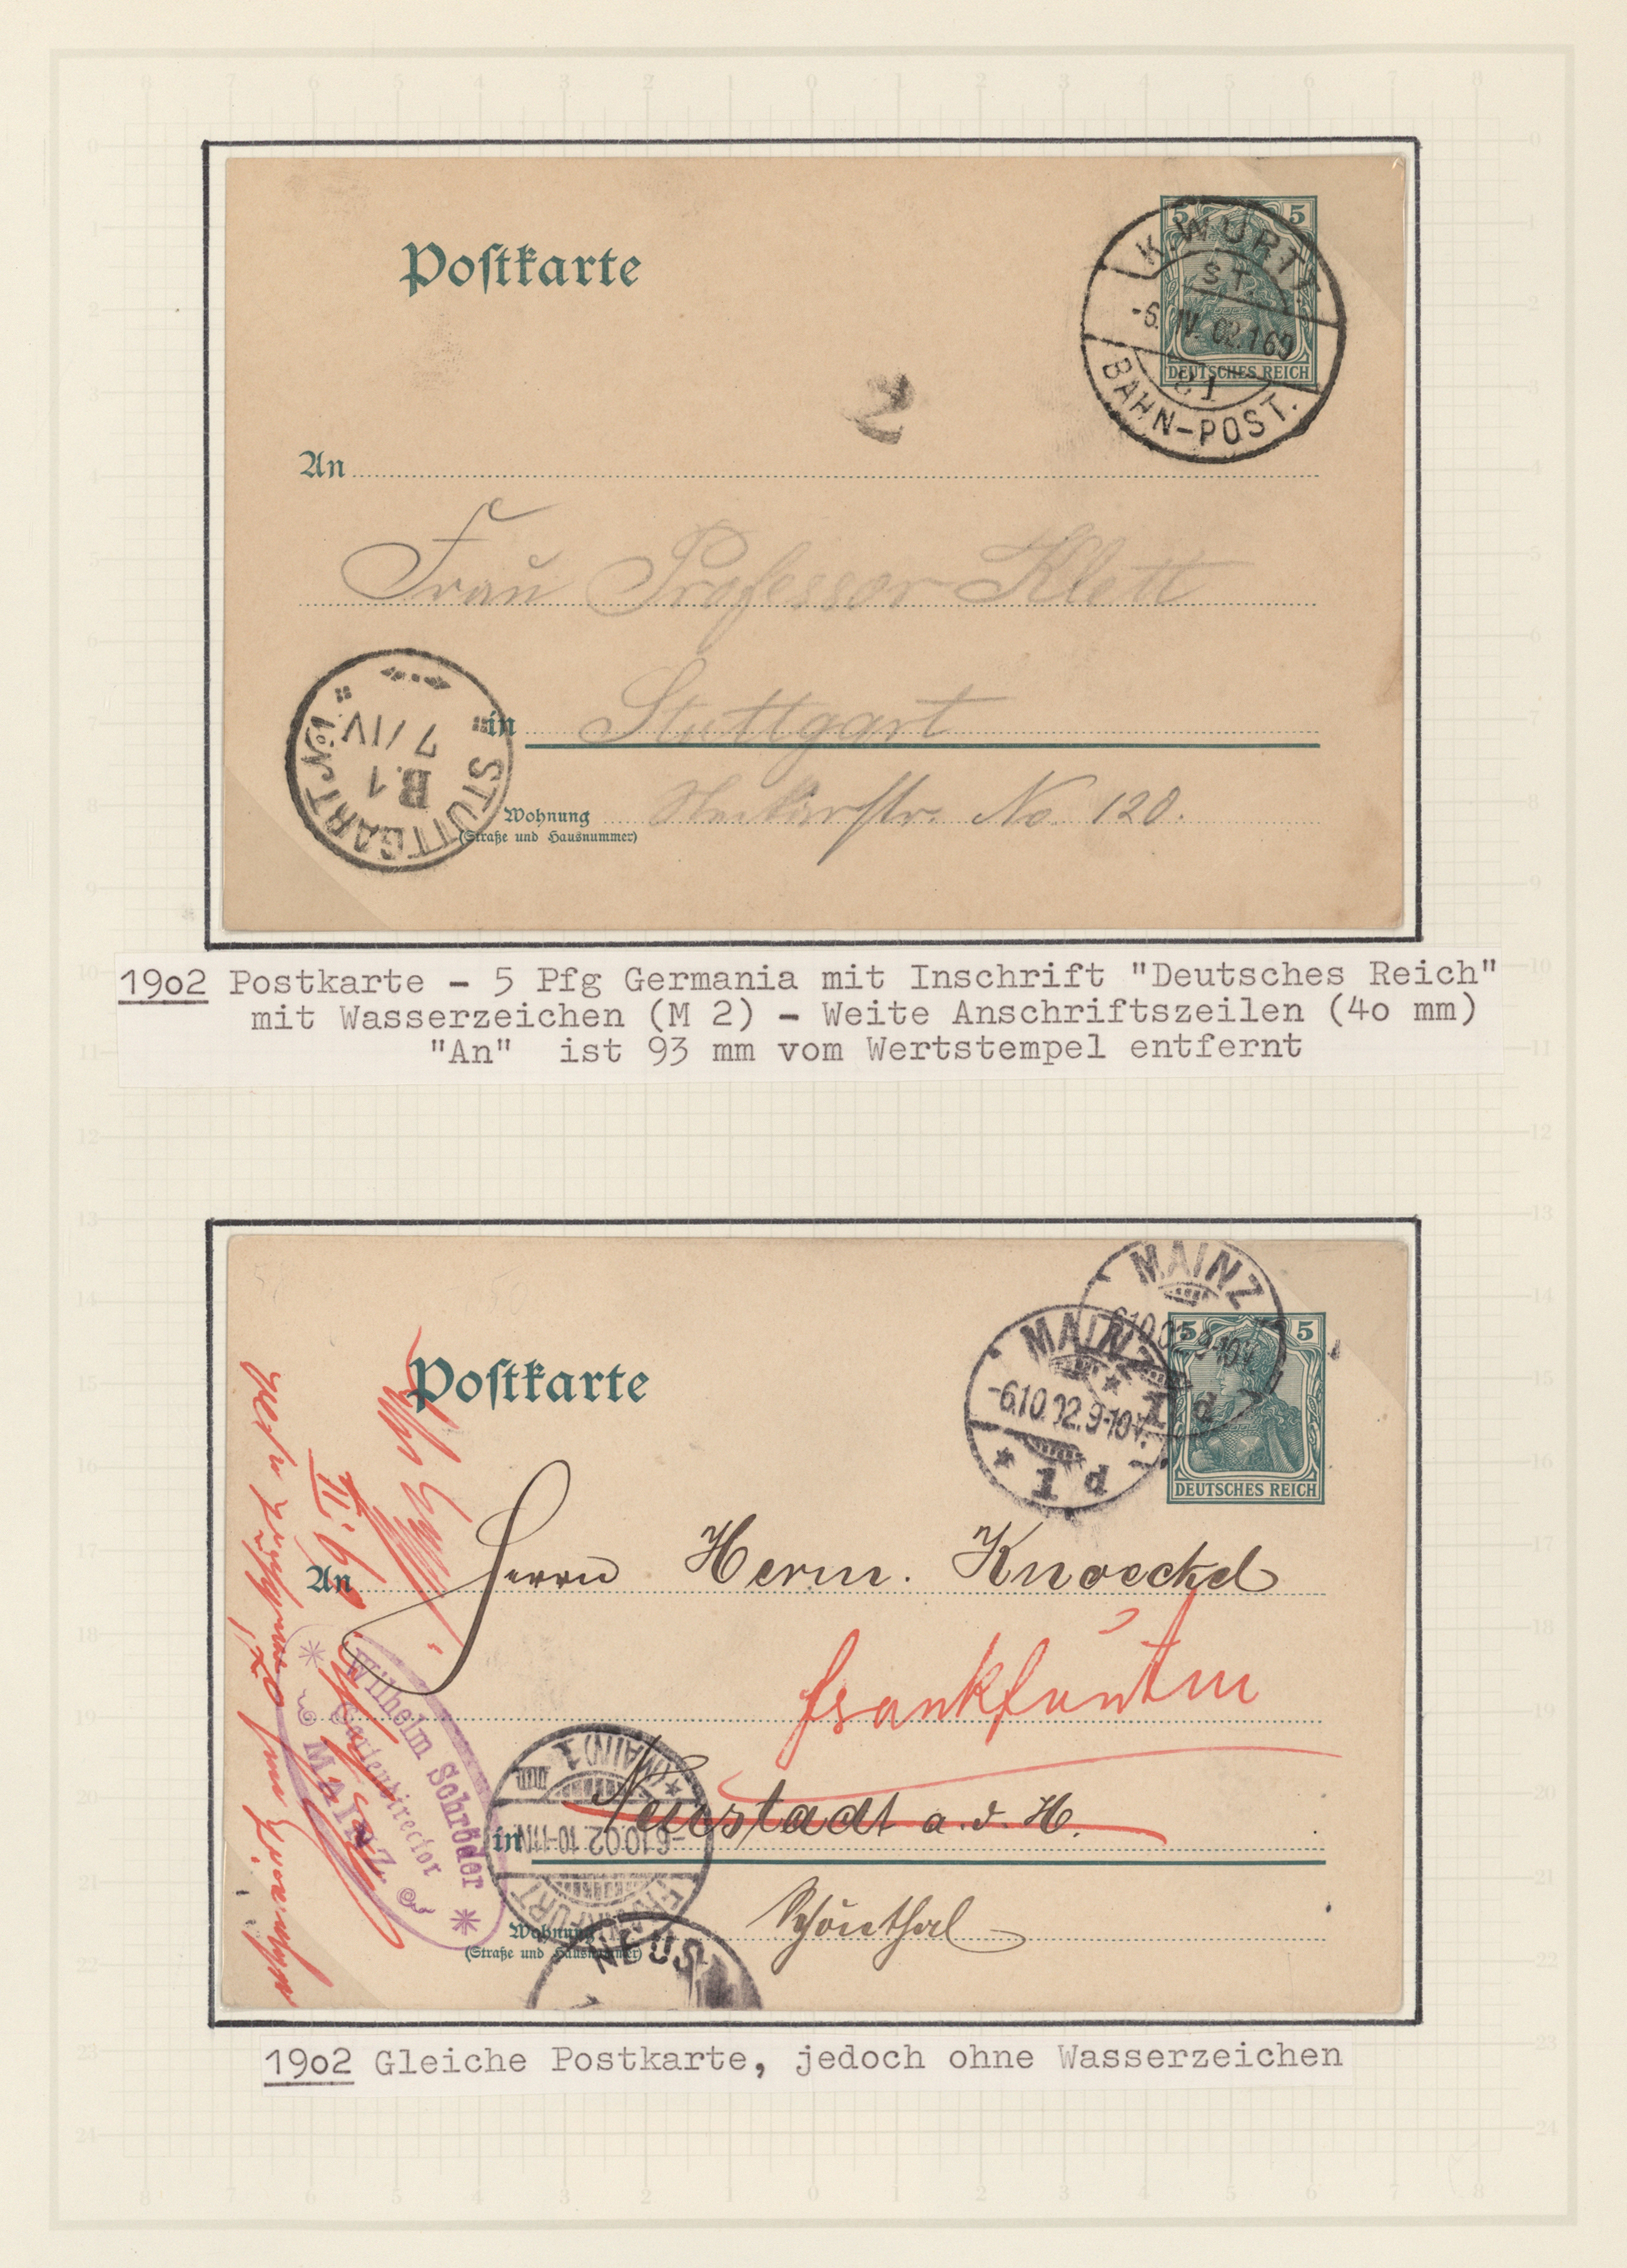 Postkarte
5 5
K. WÜRTT.
ST.
-6. IV. 02. 169
21
BAHN-POST.
DEUTSCHES REICH
2
An
Frau Professor Klett
in Stuttgart
STUTTGART No. 1.
B.1
7/IV
Wohnung Neckarstr. No. 120.
(Straße und Hausnummer)
19o2 Postkarte - 5 Pfg Germania mit Inschrift "Deutsches Reich"
mit Wasserzeichen (M 2) - Weite Anschriftszeilen (4o mm)
"An" ist 93 mm vom Wertstempel entfernt
Postkarte
5 5
MAINZ
6.10.02.9-10V.
1 d
MAINZ
-6.10.02.9-10V.
* 1 d
DEUTSCHES REICH
An Herrn Herm. Knoeckel
Frankfurt m
in Neustadt a. d. H.
Wilhelm Schröder
Gartendirector
Mainz
FRANKFURT
-6.10.02. 10-11N.
(MAIN) 1
Wohnung Schönthal
(Straße und Hausnummer)
NEUS
19o2 Gleiche Postkarte, jedoch ohne Wasserzeichen